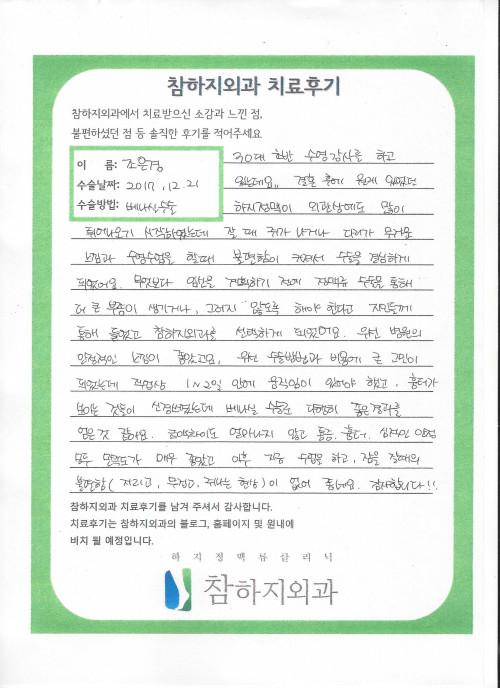 참하지외과 치료후기
참하지외과에서 치료받으신 소감과 느낀 점,
불편하셨던 점 등 솔직한 후기를 적어주세요
이 름: 조은경
수술날짜: 2017. 12. 21
수술방법: 베나실수술
30대 초반 수영강사를 하고
있는데요, 결혼 후에 원래 있었던
하지정맥이 외관상에도 많이
튀어나오기 시작하였는데 잘 때 쥐가 나거나 다리가 무거운
느낌과 수영수업을 할때 불편함이 커져서 수술을 결심하게
되었어요. 무엇보다 임신을 계획하기 전에 정맥류 수술을 통해
더 큰 부종이 생기거나, 그러지 않도록 해야 한다고 지인들께
통해 들었고 참하지외과를 선택하게 되었어요. 우선 병원의
안정적인 느낌이 좋았고요, 우선 수술방법과 비용에 큰 고민이
되었는데 직업상 1~2일 안에 움직임이 있어야 했고, 흉터가
보이는 것들이 신경쓰였는데 베나실 수술로 다행히 좋은결과를
얻은것 같아요. 일어나지 않고 통증, 흉터, 심적인 안정
모두 만족도가 매우 좋았고 이후 지금 수영을 하고, 잠을 잘때의
불편함( 저리고, 무겁고, 쥐나는 현상)이 없어 좋네요. 감사합니다!!
참하지외과 치료후기를 남겨 주셔서 감사합니다.
치료후기는 참하지외과의 블로그, 홈페이지 및 원내에
비치 될 예정입니다.
하지정맥류클리닉
참하지외과